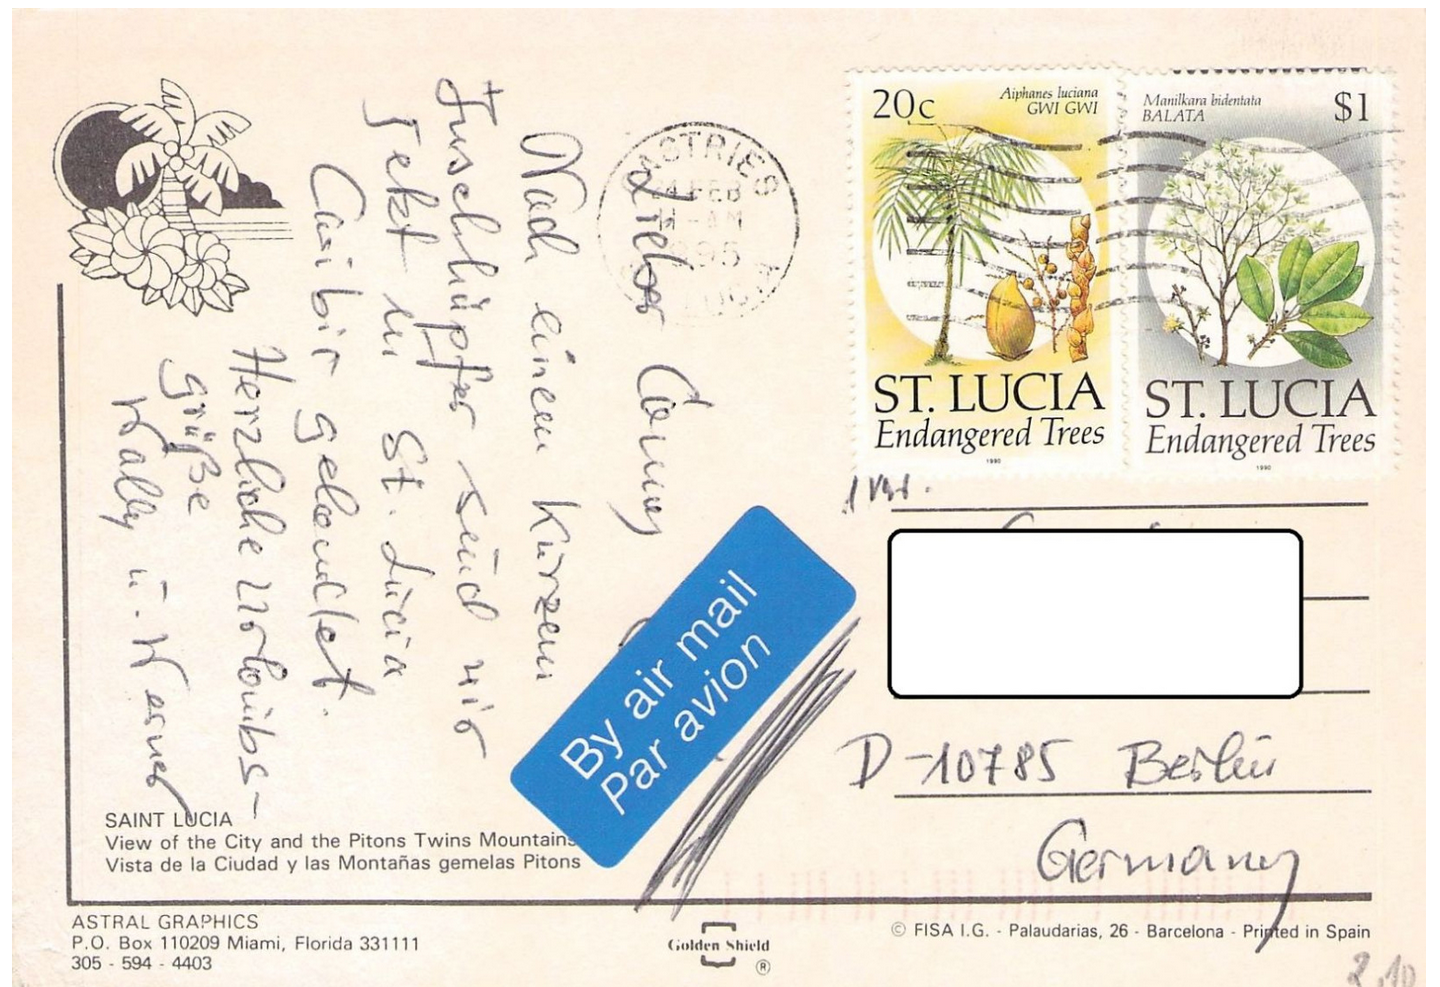 Lieber Conny
Nach einem kurzen
Inselhüpfer sind wir
jetzt in St. Lucia
Caribic gelandet.
Herzliche Urlaubs-
grüße
Wally u. Werner
CASTRIES
FEB
AM
1995
20c
Aiphanes luciana
GWI GWI
ST. LUCIA
Endangered Trees
1990
Manilkara bidentata
BALATA
$1
ST. LUCIA
Endangered Trees
1990
By air mail
Par avion
D-10785 Berlin
Germany
SAINT LUCIA
View of the City and the Pitons Twins Mountains
Vista de la Ciudad y las Montañas gemelas Pitons
ASTRAL GRAPHICS
P.O. Box 110209 Miami, Florida 331111
305 - 594 - 4403
Golden Shield
®
© FISA I.G. - Palaudarias, 26 - Barcelona - Printed in Spain
2,10